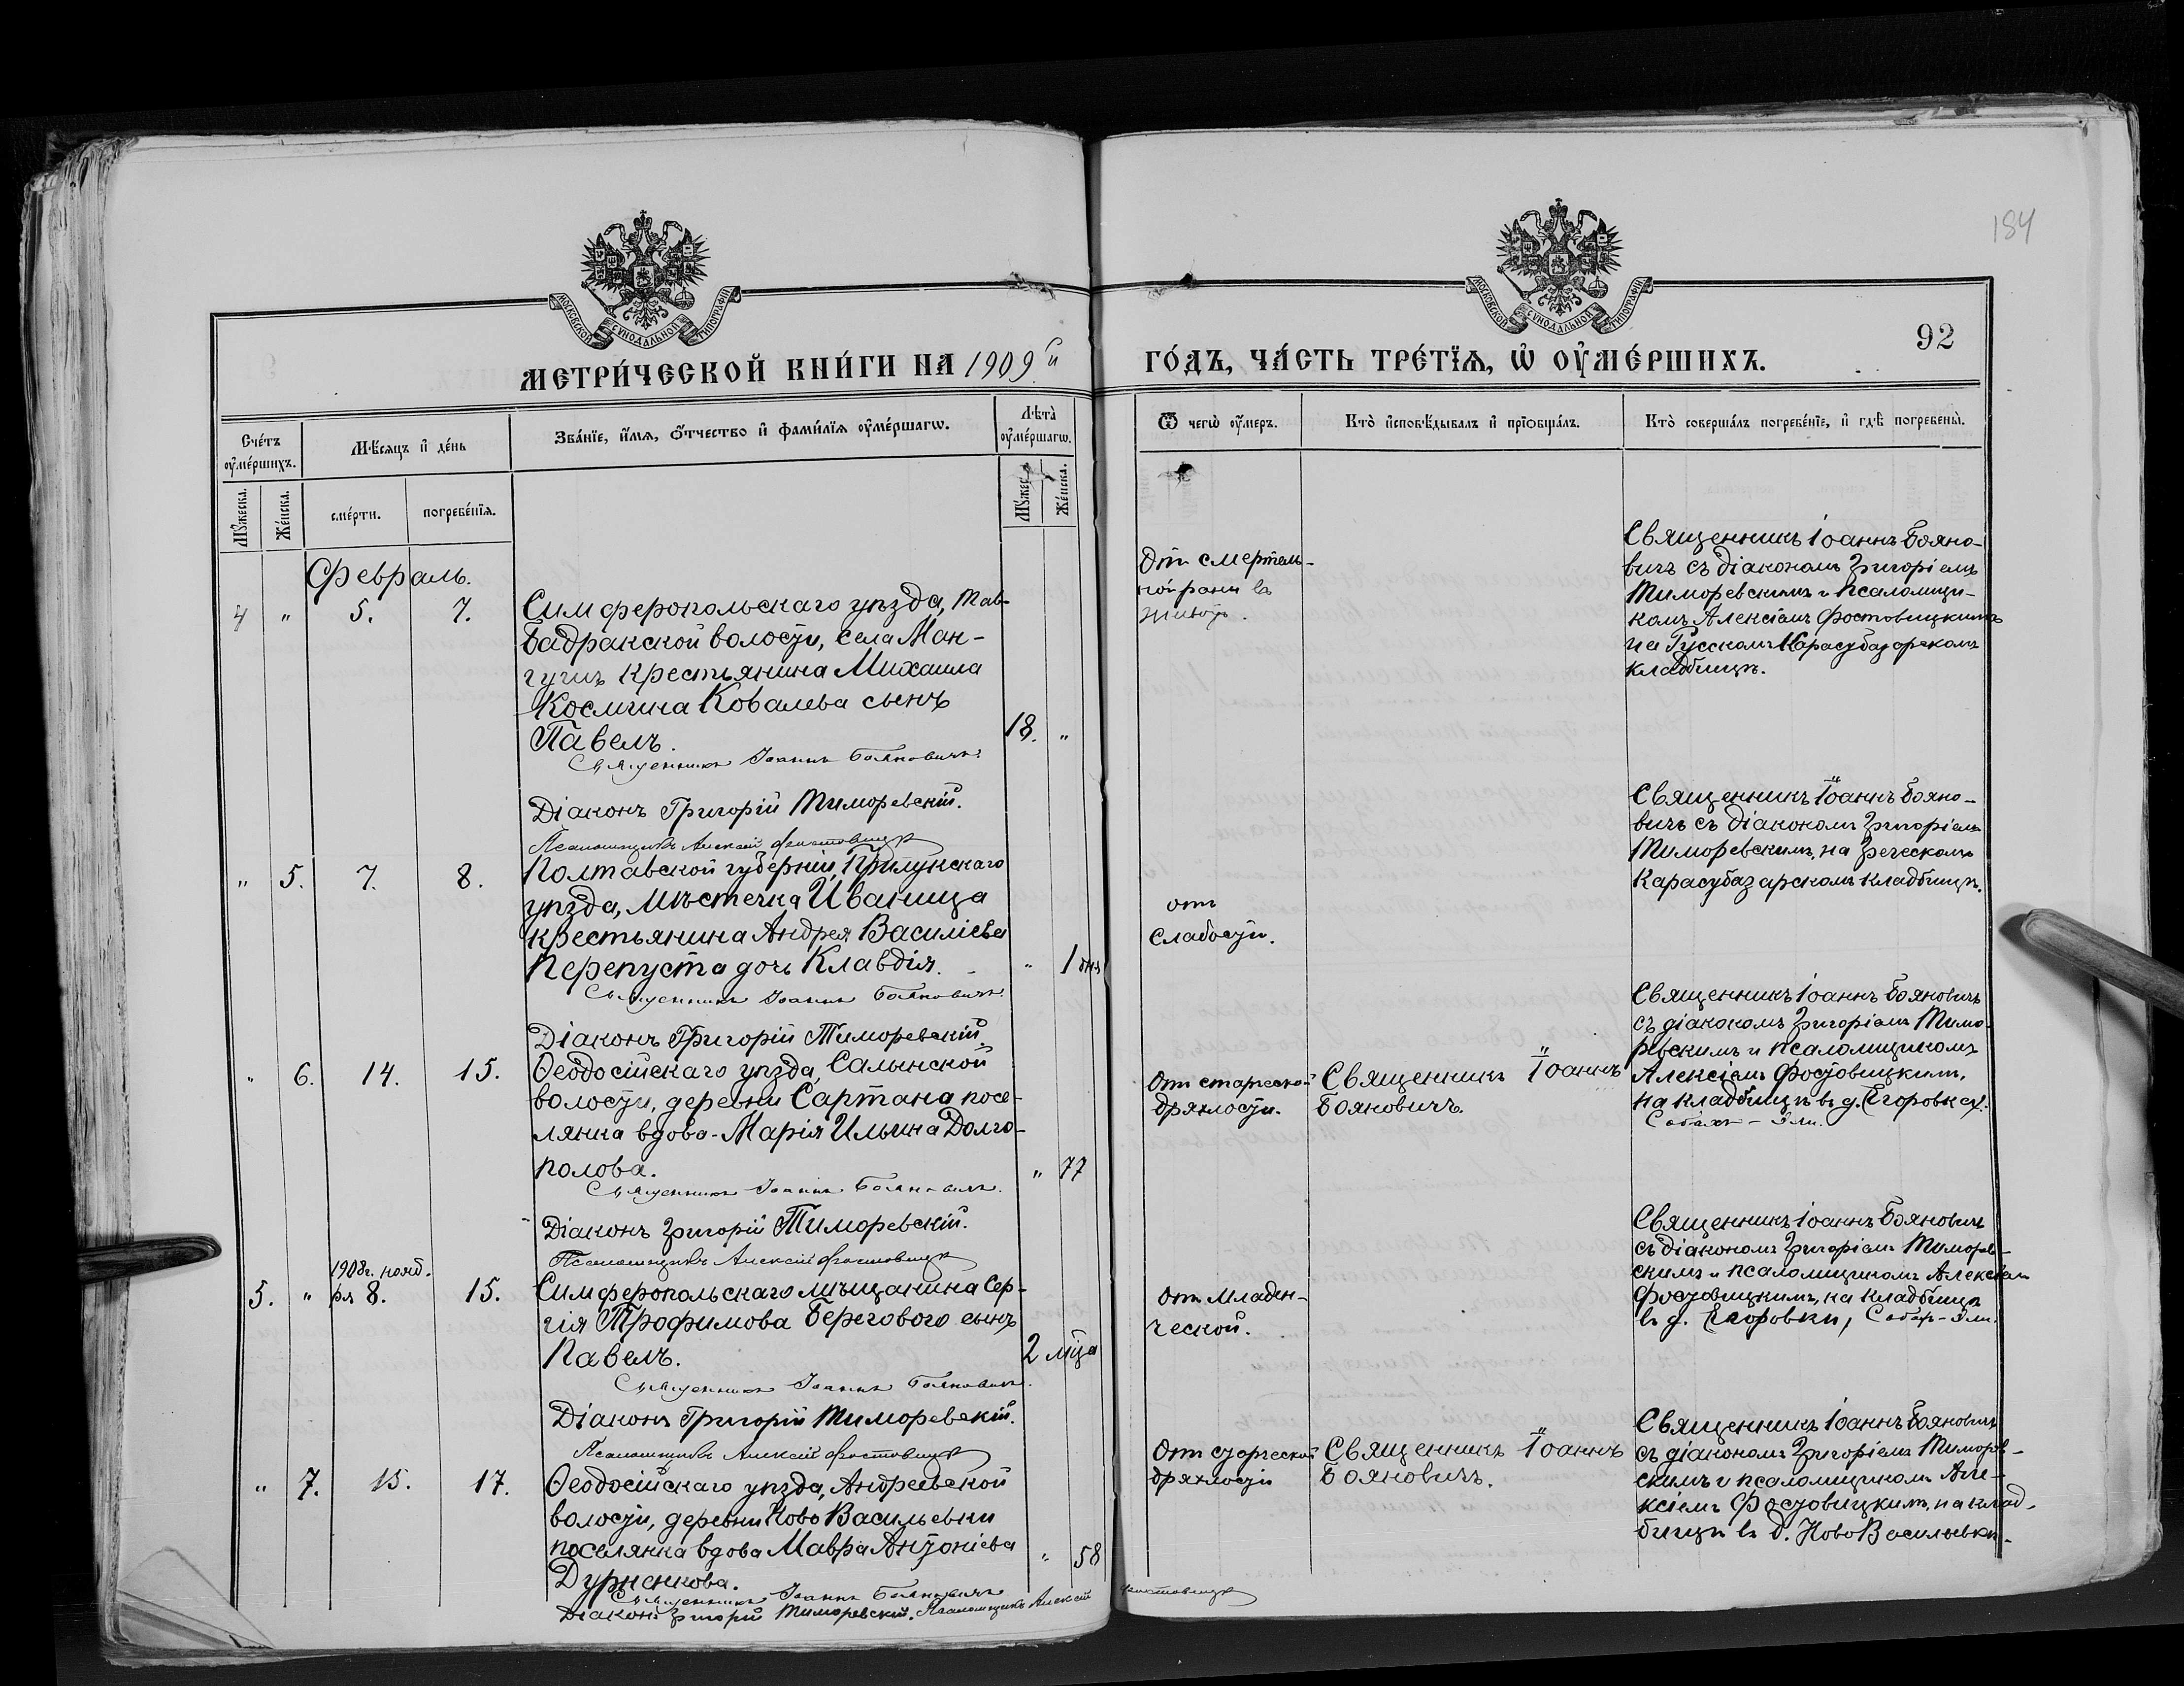 184
92
МОСКОВСКОЙ СѴНОДАЛЬНОЙ ТИПОГРАФІИ
МОСКОВСКОЙ СѴНОДАЛЬНОЙ ТИПОГРАФІИ
МЕТРИ́ЧЕСКОЙ КНИ́ГИ НА 1909 й
ГО́ДЪ, ЧА́СТЬ ТРЕ́ТЇѦ, Ѡ҆ ОУ҆МЕ́РШИХЪ.
Сче́тъ оу҆ме́ршихъ.
Мѣ́сѧцъ и҆ де́нь
Зва́нїе, и҆́мѧ, ѻ҆́тчество и҆ фами́лїѧ оу҆ме́ршагѡ.
Лѣ́та оу҆ме́ршагѡ.
Ѿ чегѡ̀ оу҆́меръ.
Кто̀ и҆сповѣ́дывалъ и҆ прїѡбща́лъ.
Кто̀ соверша́лъ погребе́нїе, и҆ гдѣ̀ погребены̀.
Мꙋ́жеска.
Же́нска.
сме́рти.
погребе́нїѧ.
Мꙋ́жес
Же́нска.
Февраль.
4 " 5. 7.
Симферопольскаго уѣзда, Тав-
бадракской волости, села Ман-
гушъ крестьянина Михаила
Космина Ковалева сынъ
Павелъ.
18. "
Священникъ Іоаннъ Бояновичъ
Діаконъ Григорій Тиморевскій.
Псаломщикъ Алексій Фостовицкій
От смертель-
ной раны въ
животъ.
Священникъ Іоаннъ Бояно-
вичъ съ діакономъ Григоріемъ
Тиморевскимъ и псаломщи-
комъ Алексіемъ Фостовицкимъ
на Русскомъ Карасубазарскомъ
кладбищѣ.
" 5. 7. 8.
Полтавской губерніи, Прилукскаго
уѣзда, мѣстечка Иваница
крестьянина Андрея Василіева
Перепуста дочь Клавдія.
" 1 дня
Священникъ Іоаннъ Бояновичъ
Діаконъ Григорій Тиморевскій.
отъ
слабости.
Священникъ Іоаннъ Бояно-
вичъ съ діакономъ Григоріемъ
Тиморевскимъ, на Греческомъ
Карасубазарскомъ кладбищѣ.
" 6. 14. 15.
Ѳеодосійскаго уѣзда, Салынской
волости, деревни Сартана посе-
лянка вдова Марія Ильина Долго-
полова.
" 77
Священникъ Іоаннъ Бояновичъ.
Діаконъ Григорій Тиморевскій.
Псаломщикъ Алексій Фостовицкій
От старческой
дряхлости.
Священникъ Іоаннъ
Бояновичъ.
Священникъ Іоаннъ Бояновичъ
съ діакономъ Григоріемъ Тимо-
ревскимъ и псаломщикомъ
Алексіемъ Фостовицкимъ,
на кладбищѣ въ д. Егоровка
1908г. нояб.
5. " ря 8. 15.
Симферопольскаго мѣщанина Сер-
гія Трофимова Берегового сынъ
Павелъ.
2 мца
Священникъ Іоаннъ Бояновичъ.
Діаконъ Григорій Тиморевскій.
Псаломщикъ Алексій Фостовицкій
от младен-
ческой.
Священникъ Іоаннъ Бояновичъ
съ діакономъ Григоріемъ Тиморев-
скимъ и псаломщикомъ Алексіемъ
Фостовицкимъ, на кладбищѣ
въ д. Егоровки,
" 7. 15. 17.
Ѳеодосійскаго уѣзда, Андреевской
волости, деревни НовоВасильевки
поселянка вдова Мавра Антоніева
Дурненкова.
" 58
Священникъ Іоаннъ Бояновичъ
Діаконъ Григорій Тиморевскій. Псаломщикъ Алексій Фостовицкій
От старческой
дряхлости
Священникъ Іоаннъ
Бояновичъ.
Священникъ Іоаннъ Бояновичъ
съ діакономъ Григоріемъ Тиморев-
скимъ и псаломщикомъ Але-
ксіемъ Фостовицкимъ, на клад-
бищѣ въ д. НовоВасильевки.